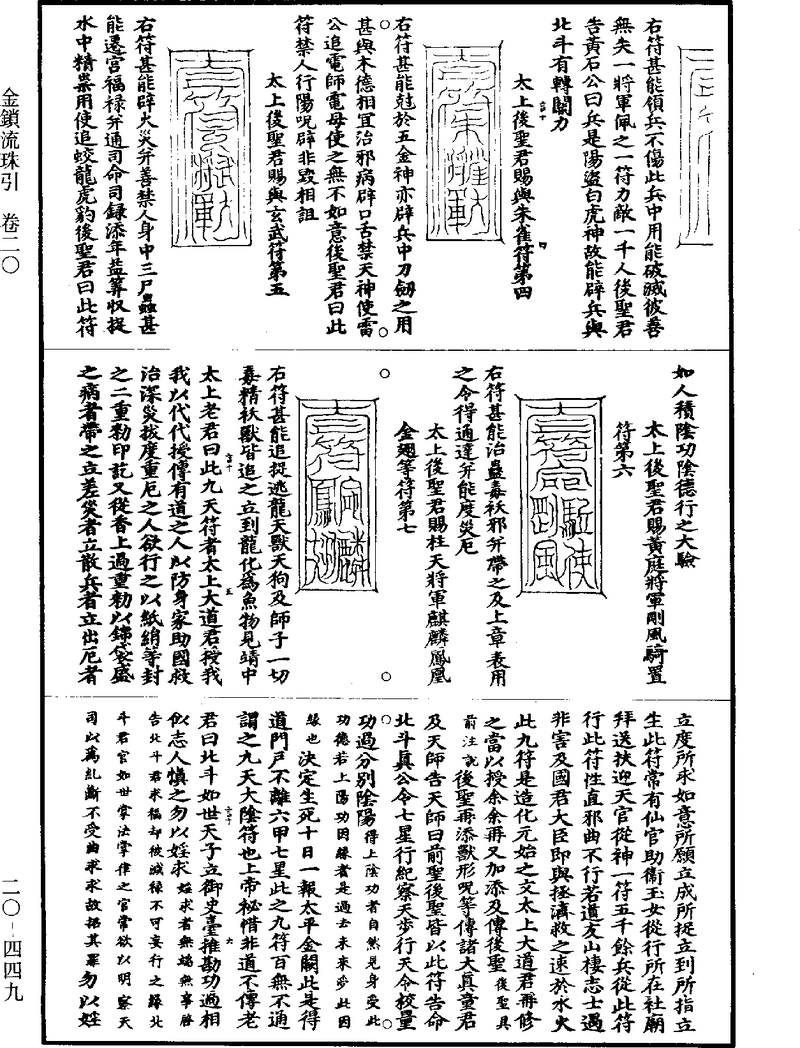 金鎖流珠引　卷二〇
二〇-四四九
右符甚能領兵不傷此兵中用能破滅彼善
無失一將軍佩之一符力敵一千人後聖君
告黃石公曰兵是陽盜白虎神故能辟兵與
北斗有轉關力
太上後聖君賜與朱雀符第四
右符甚能尅於五金神亦辟兵中刀劒之用
甚與木德相宜治邪病辟口舌禁天神使雷
公追電師電母使之無不如意後聖君曰此
符禁人行陽呪辟非毀相詛
太上後聖君賜與玄武符第五
右符甚能辟火災并善禁人身中三尸蟲甚
能遷官福祿并通司命司錄添年益筭収捉
水中精祟用使追蛟龍虎豹後聖君曰此符
如人積陰功陰德行之大驗
太上後聖君賜黃庭將軍剛風騎置
符第六
右符甚能治蠱毒袄邪并帶之及上章表用
之令得通達并能度災厄
太上後聖君賜柱天將軍麒麟鳳凰
金翅等符第七
右符甚能追捉逃龍天獸天狗及師子一切
毒精袄獸皆追之立到龍化爲魚物見靖中
太上老君曰此九天符者太上大道君授我
我以代代授傳有道之人以防身家助國救
治深災拔度重厄之人欲行之以紙絹等封
之二重勑印訖又從香上過重勑以錦袋盛
之病者帶之立差災者立散兵者立出厄者
立度所求如意所願立成所捉立到所指立
生此符常有仙官助衞玉女從行所在社廟
拜送扶迎天官從神一符五千餘兵從此符
行此符性直邪曲不行若道友山棲志士遇
非害及國君大臣即與拯濟救之速於水火
此九符是造化元始之文太上大道君再修
之當以授余余再又加添及傳後聖後聖具
前注訖後聖再添獸形呪等傳諸大真童君
及天師告天師曰前聖後聖皆以此符告命
北斗真公令七星行紀察天步行天令校量
功過分別陰陽得上陰功者自然見身受此
功德若上陽功因緣者是過去未來步此因
緣也決定生死十日一報太平金闕此是得
道門戶不離六甲七星此之九符百無不通
謂之九天大陰符也上帝祕惜非道不傳老
君曰北斗如世天子立御史臺推勘功過相
似志人愼之勿以婬求婬求者無媱無事啓
告北斗君求福却被減祿不可妄行之緣北
斗君官如世掌法掌律之官常欲以明察天
司以爲亂斷不受曲求求故招其罪勿以婬